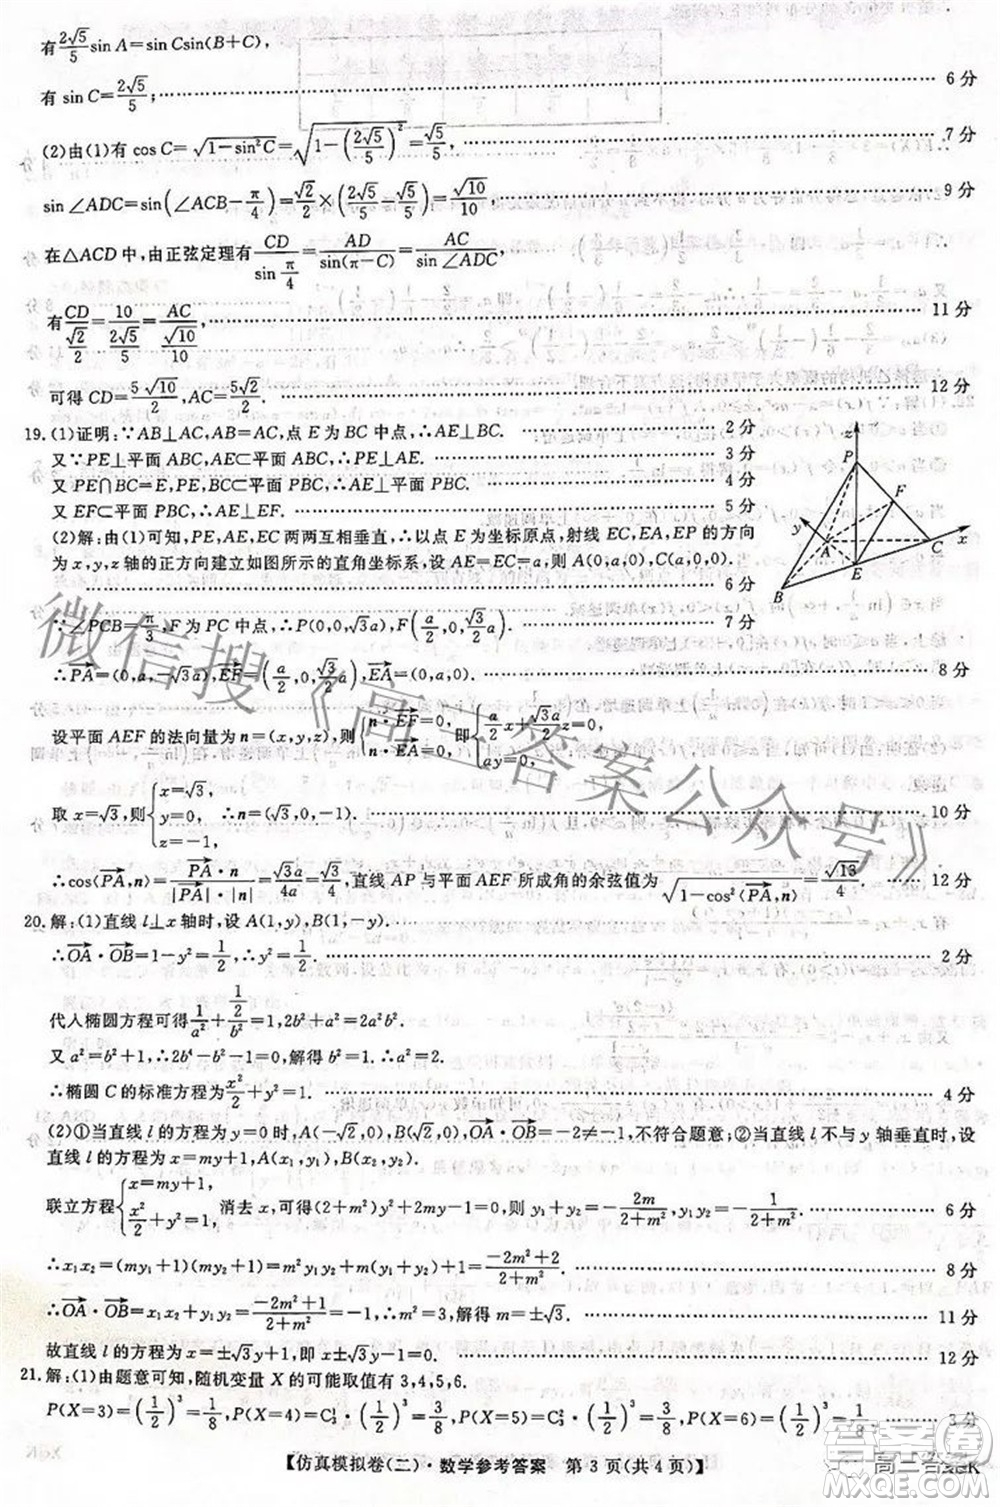 有2√5/5 sin A=sin Csin(B+C),
有 sin C=2√5/5;……6 分
(2)由(1)有 cos C=√(1-sin²C)=√(1-(2√5/5)²)=√5/5,……7 分
sin∠ADC=sin(∠ACB-π/4)=√2/2×(2√5/5-√5/5)=√10/10,……9 分
在△ACD 中,由正弦定理有CD/sin π/4=AD/sin(π-C)=AC/sin∠ADC,
有CD/(√2/2)=10/(2√5/5)=AC/(√10/10),……11 分
可得 CD=5√10/2,AC=5√2/2.……12 分
19.(1)证明:∵AB⊥AC,AB=AC,点 E 为 BC 中点,∴AE⊥BC.……2 分
又∵PE⊥平面 ABC,AE⊂平面 ABC,∴PE⊥AE.……3 分
又 PE∩BC=E,PE,BC⊂平面 PBC,∴AE⊥平面 PBC.……4 分
又 EF⊂平面 PBC,∴AE⊥EF.……5 分
(2)解:由(1)可知,PE,AE,EC 两两互相垂直,∴以点 E 为坐标原点,射线 EC,EA,EP 的方向
为 x,y,z 轴的正方向建立如图所示的直角坐标系,设 AE=a,则 A(0,a,0),C(a,0,0).
……6 分
z
P
F
y
A
C
x
E
B
∵∠PCB=π/3,F 为 PC 中点,∴P(0,0,√3a),F(a/2,0,√3/2a).……7 分
∴PA=(0,a,-√3a),EF=(a/2,0,√3/2a),EA=(0,a,0).……8 分
设平面 AEF 的法向量为 n=(x,y,z),则{n·EF=0, n·EA=0, 即{a/2x+√3a/2z=0, ay=0,
取 x=√3,则{x=√3, y=0, z=-1, ∴n=(√3,0,-1).……10 分
∴cos⟨PA,n⟩=PA·n/|PA|·|n|=√3a/4a=√3/4,直线 AP 与平面 AEF 所成角的余弦值为√(1-cos²⟨PA,n⟩)=√13/4.……12 分
20.解:(1)直线 l⊥x 轴时,设 A(1,y),B(1,-y).
∴OA·OB=1-y²=1/2,∴y²=1/2.……2 分
代人椭圆方程可得1/a²+(1/2)/b²=1,2b²+a²=2a²b².
又 a²=b²+1,∴2b⁴-b²-1=0,解得 b²=1.∴a²=2.
∴椭圆 C 的标准方程为x²/2+y²=1.……4 分
(2)①当直线 l 的方程为 y=0 时,A(-√2,0),B(√2,0),OA·OB=-2≠-1,不符合题意;②当直线 l 不与 y 轴垂直时,设
直线 l 的方程为 x=my+1,A(x₁,y₁),B(x₂,y₂).
联立方程{x=my+1, x²/2+y²=1, 消去 x,可得(2+m²)y²+2my-1=0,则 y₁+y₂=-2m/(2+m²),y₁y₂=-1/(2+m²).……6 分
∴x₁x₂=(my₁+1)(my₂+1)=m²y₁y₂+m(y₁+y₂)+1=(-2m²+2)/(2+m²).……8 分
∴OA·OB=x₁x₂+y₁y₂=(-2m²+1)/(2+m²)=-1,∴m²=3,解得 m=±√3.……11 分
故直线 l 的方程为 x=±√3y+1,即 x±√3y-1=0.……12 分
21.解:(1)由题意可知,随机变量 X 的可能取值有 3,4,5,6.
P(X=3)=(1/2)³=1/8,P(X=4)=C₃¹·(1/2)³=3/8,P(X=5)=C₃²·(1/2)³=3/8,P(X=6)=(1/2)³=1/8.……3 分
【仿真模拟卷(二)·数学参考答案 第 3 页(共 4 页)】
微信搜《高三答案公众号》